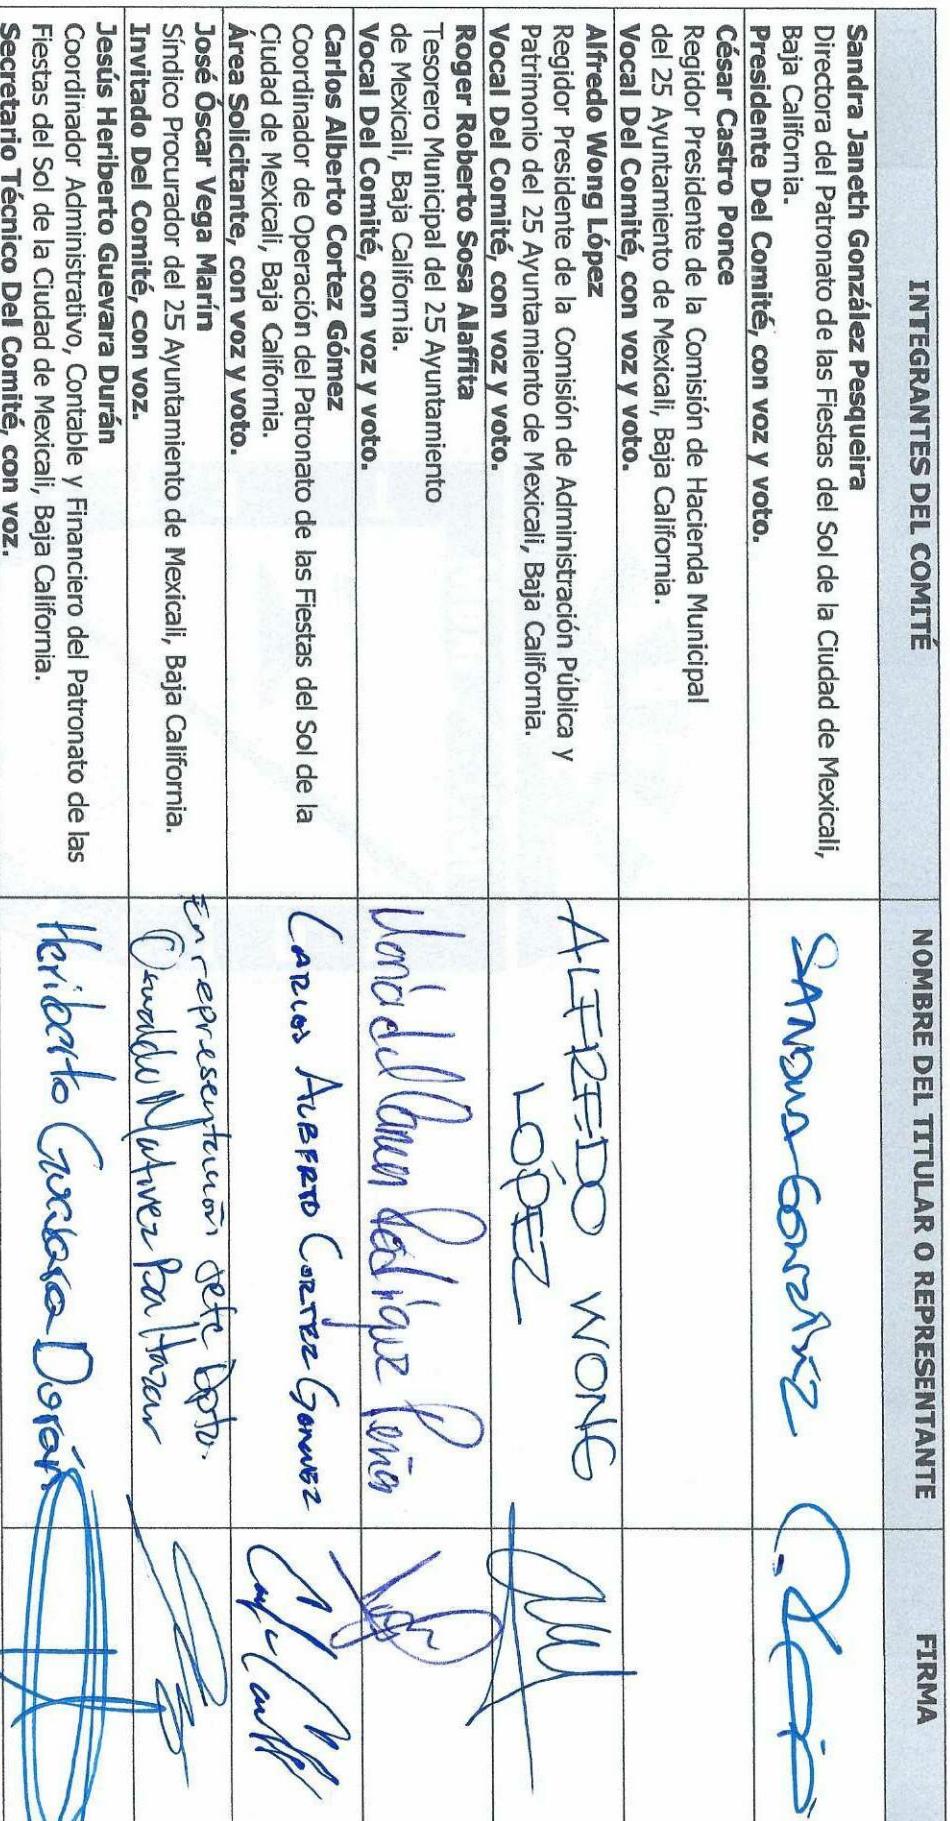 INTEGRANTES DEL COMITÉ
NOMBRE DEL TITULAR O REPRESENTANTE
FIRMA
Sandra Janeth González Pesqueira
Directora del Patronato de las Fiestas del Sol de la Ciudad de Mexicali,
Baja California.
Presidente Del Comité, con voz y voto.
SANDRA GONZÁLEZ
César Castro Ponce
Regidor Presidente de la Comisión de Hacienda Municipal
del 25 Ayuntamiento de Mexicali, Baja California.
Vocal Del Comité, con voz y voto.
Alfredo Wong López
Regidor Presidente de la Comisión de Administración Pública y
Patrimonio del 25 Ayuntamiento de Mexicali, Baja California.
Vocal Del Comité, con voz y voto.
ALFREDO WONG
LÓPEZ
Roger Roberto Sosa Alaffita
Tesorero Municipal del 25 Ayuntamiento
de Mexicali, Baja California.
Vocal Del Comité, con voz y voto.
María del Carmen Rodríguez Peña
Carlos Alberto Cortez Gómez
Coordinador de Operación del Patronato de las Fiestas del Sol de la
Ciudad de Mexicali, Baja California.
Área Solicitante, con voz y voto.
CARLOS ALBERTO CORTEZ GOMEZ
José Óscar Vega Marín
Síndico Procurador del 25 Ayuntamiento de Mexicali, Baja California.
Invitado Del Comité, con voz.
En representación Jefe Dpto.
Oswaldo Baltazar
Jesús Heriberto Guevara Durán
Coordinador Administrativo, Contable y Financiero del Patronato de las
Fiestas del Sol de la Ciudad de Mexicali, Baja California.
Secretario Técnico Del Comité, con voz.
Heriberto Guevara Durán